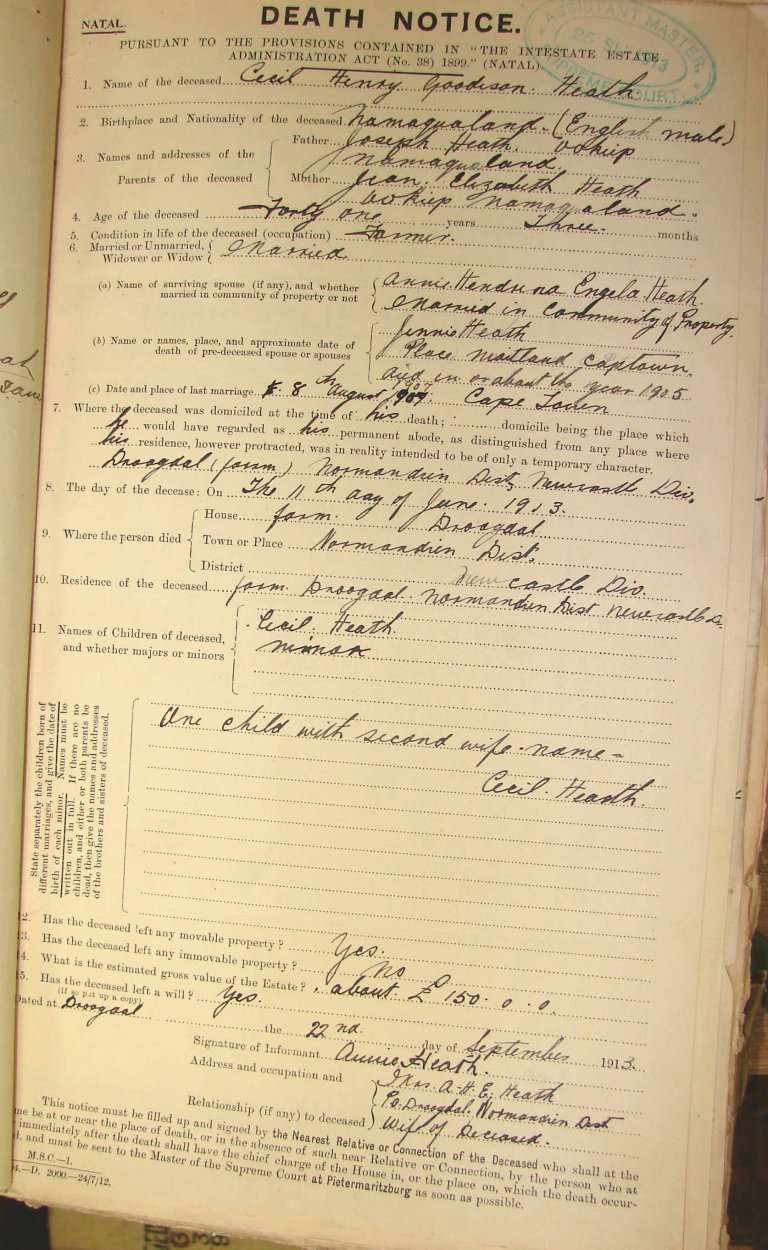 NATAL.
DEATH NOTICE.
ASSISTANT MASTER,
25 SEP 1913
SUPREME COURT
PURSUANT TO THE PROVISIONS CONTAINED IN "THE INTESTATE ESTATE
ADMINISTRATION ACT (No. 38) 1899." (NATAL).
1. Name of the deceased Cecil Henry Goodison Heath
2. Birthplace and Nationality of the deceased Namaqualand. (English male)
3. Names and addresses of the Parents of the deceased
Father Joseph Heath. Ookiep
Namaqualand
Mother Jean Elizabeth Heath
Ookiep Namaqualand.
4. Age of the deceased Forty one years Three months
5. Condition in life of the deceased (occupation) Farmer.
6. Married or Unmarried, Widower or Widow Married
(a) Name of surviving spouse (if any), and whether married in community of property or not
Annie Hendrina Engela Heath.
Married in Community of Property.
(b) Name or names, place, and approximate date of death of pre-deceased spouse or spouses
Jennie Heath
Place Maitland Captown.
died in or about the year 1905
(c) Date and place of last marriage. 8th August 1907 Cape Town
7. Where the deceased was domiciled at the time of his death; domicile being the place which
he would have regarded as his permanent abode, as distinguished from any place where
his residence, however protracted, was in reality intended to be of only a temporary character.
Droogdal (farm) Normandien Dist, Newcastle Div.
8. The day of the decease: On The 11th day of June 1913.
9. Where the person died
House farm. Droogdal
Town or Place Normandien Dist.
District Newcastle Div.
10. Residence of the deceased farm Droogdal Normandien Dist Newcastle
11. Names of Children of deceased, and whether majors or minors
Cecil Heath
minor
State separately the children born of
different marriages, and give the date of
birth of each minor. Names must be
written out in full. If there are no
children, and either or both parents be
dead, then give the names and addresses
of the brothers and sisters of deceased.
One child with second wife. name =
Cecil Heath
2. Has the deceased left any movable property? Yes.
3. Has the deceased left any immovable property? no
4. What is the estimated gross value of the Estate? about £150. 0. 0.
5. Has the deceased left a will? Yes.
(If so put up a copy)
Dated at Droogdal the 22nd day of September 1913.
Signature of Informant Annie Heath.
Address and occupation and
Mrs. A. H. E. Heath
Po. Droogdal Normandien Dist
Relationship (if any) to deceased Wife of Deceased.
This notice must be filled up and signed by the Nearest Relative or Connection of the Deceased who shall at the
me be at or near the place of death, or in the absence of such near Relative or Connection, by the person who at
immediately after the death shall have the chief charge of the House in, or the place on, which the death occur-
d, and must be sent to the Master of the Supreme Court at Pietermaritzburg as soon as possible.
M.S.C.—1.
4.—D. 2000.—24/7/12.